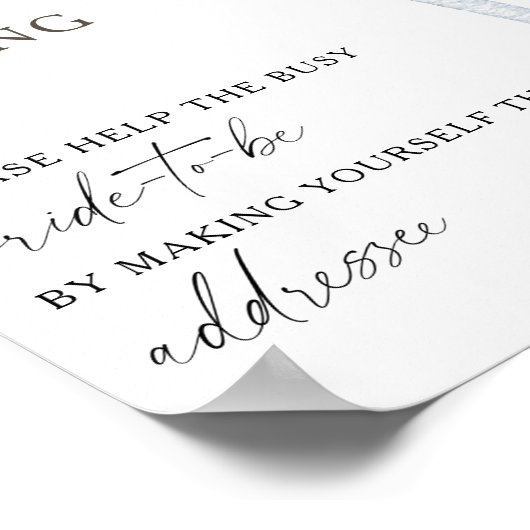 NG
ASE HELP THE BUSY
ride-to-be
BY MAKING YOURSELF TH
addressee